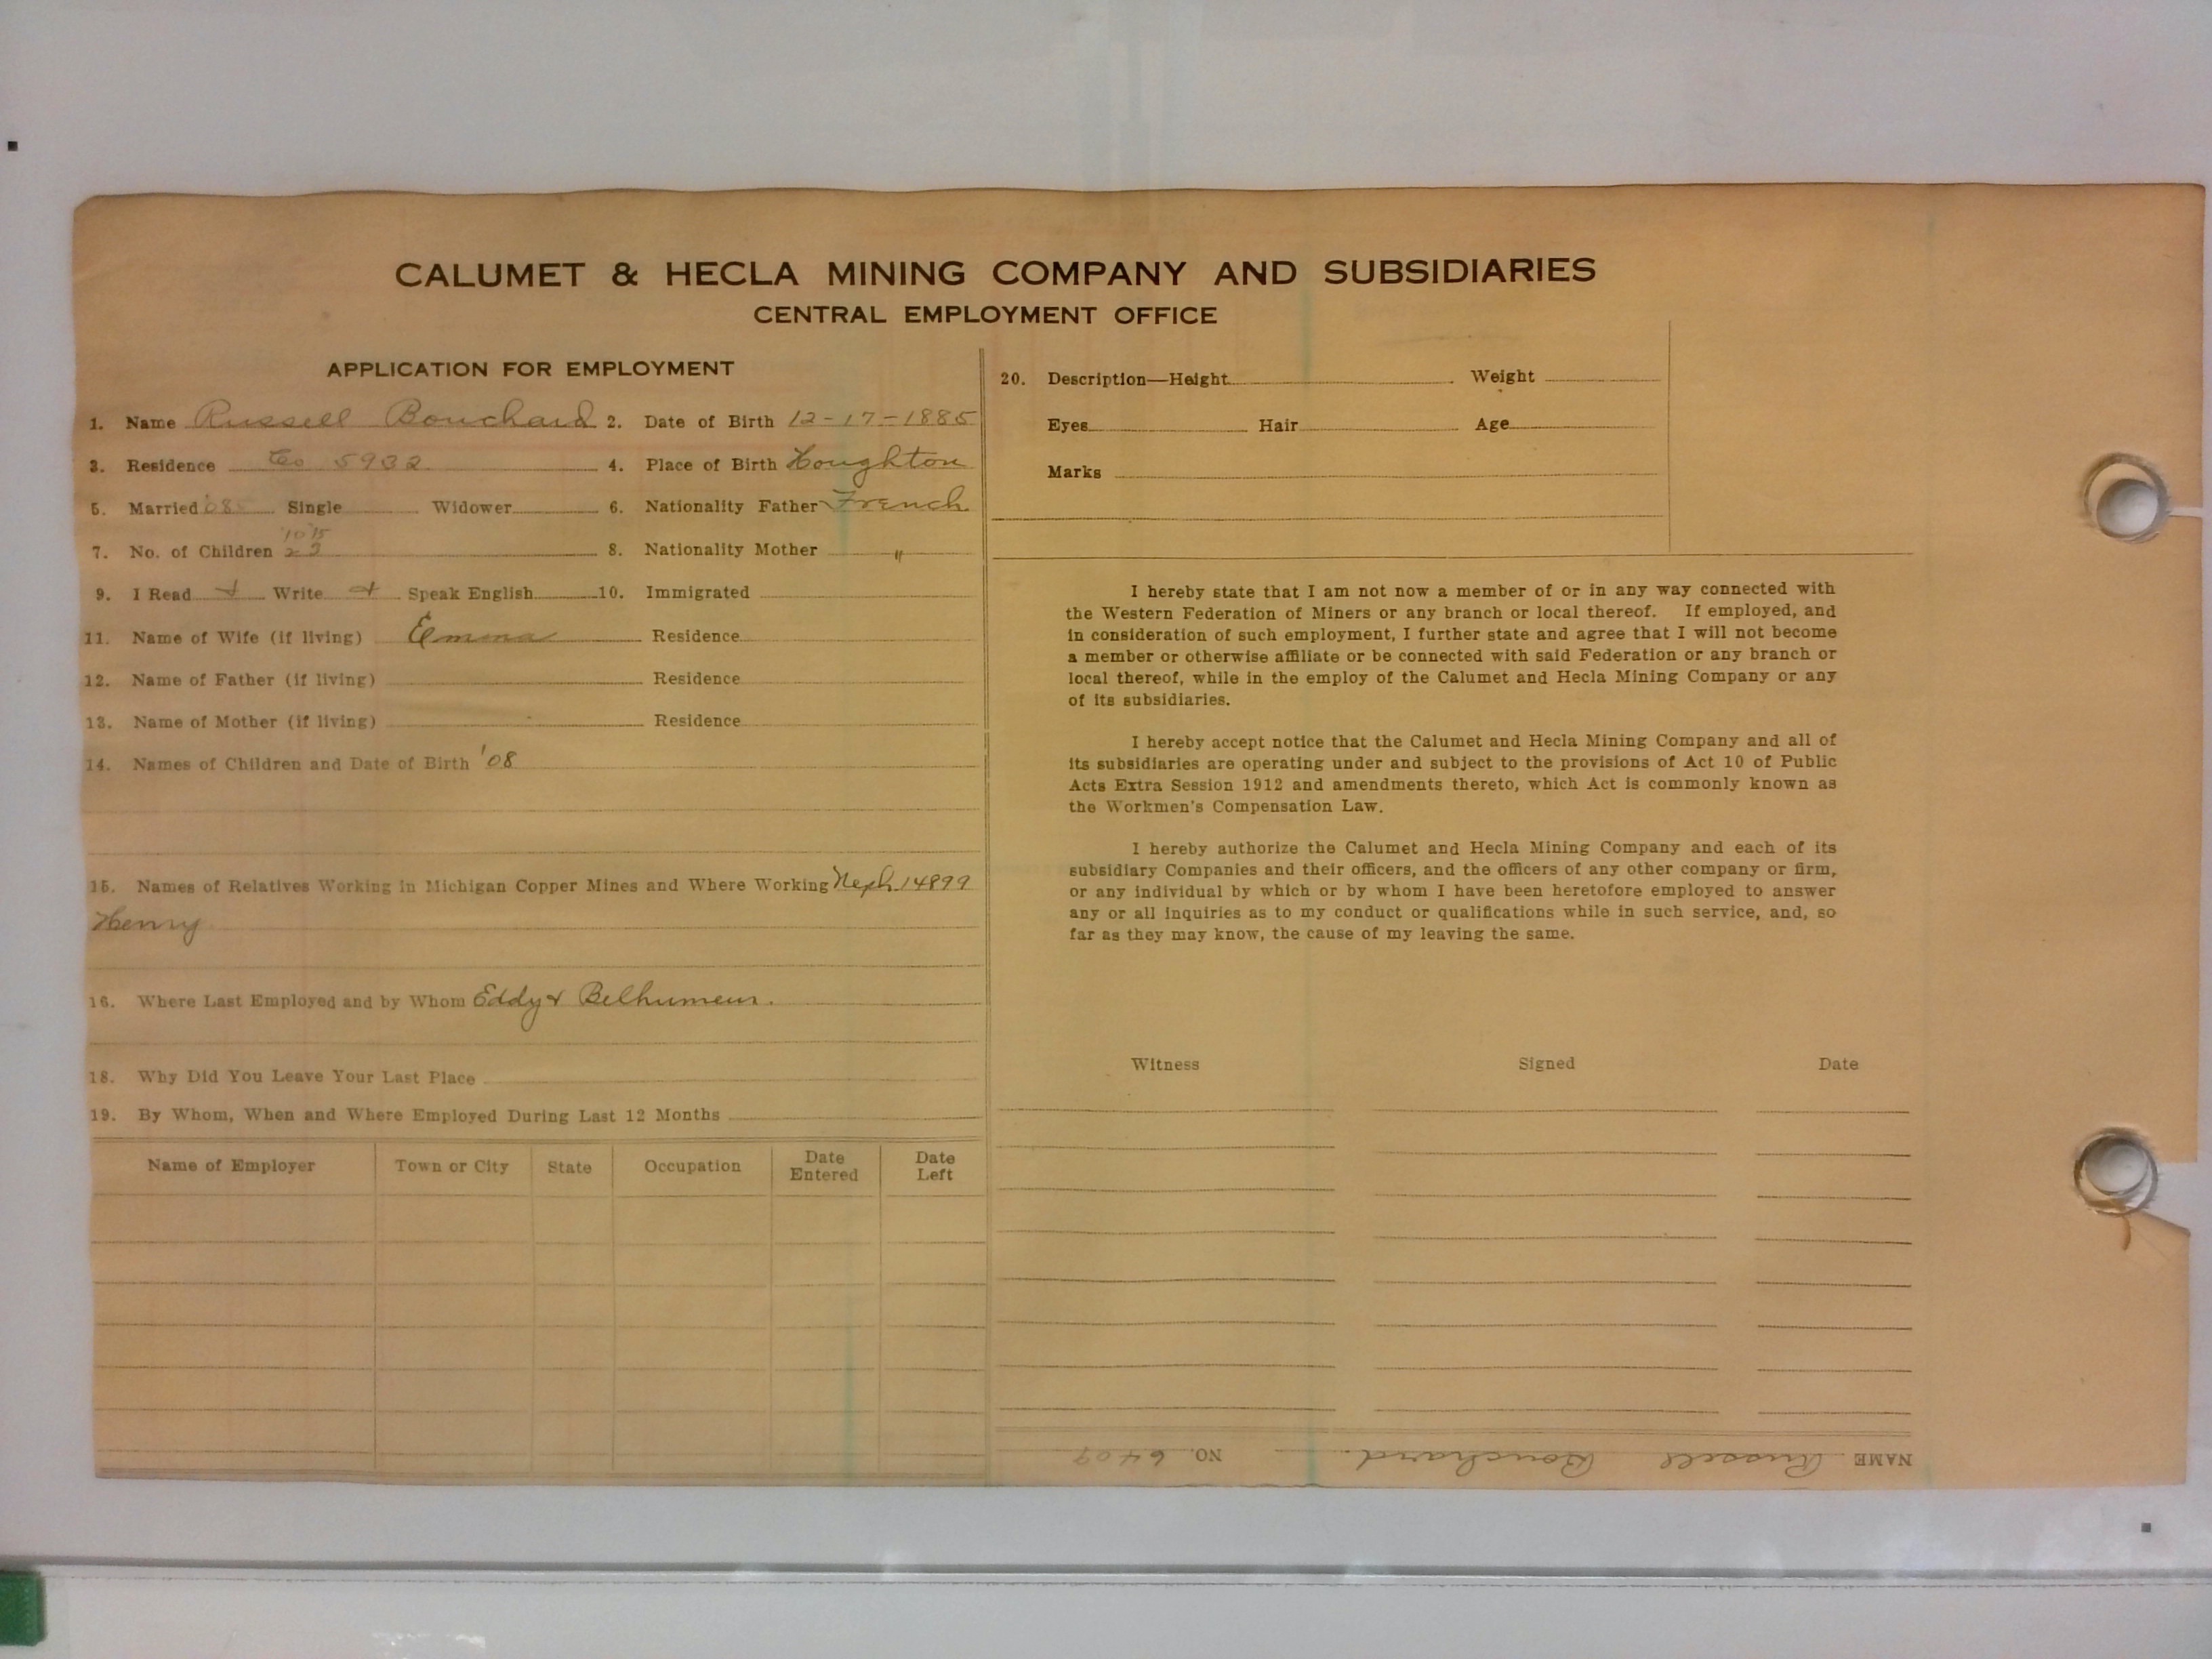 CALUMET & HECLA MINING COMPANY AND SUBSIDIARIES
CENTRAL EMPLOYMENT OFFICE
APPLICATION FOR EMPLOYMENT
1. Name Russell Bouchard 2. Date of Birth 12-17-1885
3. Residence Co 5932 4. Place of Birth Houghton
5. Married '08 Single Widower 6. Nationality Father French
'10 '15
7. No. of Children 2 3 8. Nationality Mother "
9. I Read + Write + Speak English 10. Immigrated
11. Name of Wife (if living) Emma Residence
12. Name of Father (if living) Residence
13. Name of Mother (if living) Residence
14. Names of Children and Date of Birth '08
15. Names of Relatives Working in Michigan Copper Mines and Where Working Neph. 14899
Henry
16. Where Last Employed and by Whom Eddy & Belhumeur.
18. Why Did You Leave Your Last Place
19. By Whom, When and Where Employed During Last 12 Months
Name of Employer Town or City State Occupation Date Entered Date Left
20. Description—Height Weight
Eyes Hair Age
Marks
I hereby state that I am not now a member of or in any way connected with
the Western Federation of Miners or any branch or local thereof. If employed, and
in consideration of such employment, I further state and agree that I will not become
a member or otherwise affiliate or be connected with said Federation or any branch or
local thereof, while in the employ of the Calumet and Hecla Mining Company or any
of its subsidiaries.
I hereby accept notice that the Calumet and Hecla Mining Company and all of
its subsidiaries are operating under and subject to the provisions of Act 10 of Public
Acts Extra Session 1912 and amendments thereto, which Act is commonly known as
the Workmen's Compensation Law.
I hereby authorize the Calumet and Hecla Mining Company and each of its
subsidiary Companies and their officers, and the officers of any other company or firm,
or any individual by which or by whom I have been heretofore employed to answer
any or all inquiries as to my conduct or qualifications while in such service, and, so
far as they may know, the cause of my leaving the same.
Witness Signed Date
NAME Russell Bouchard. NO. 6409